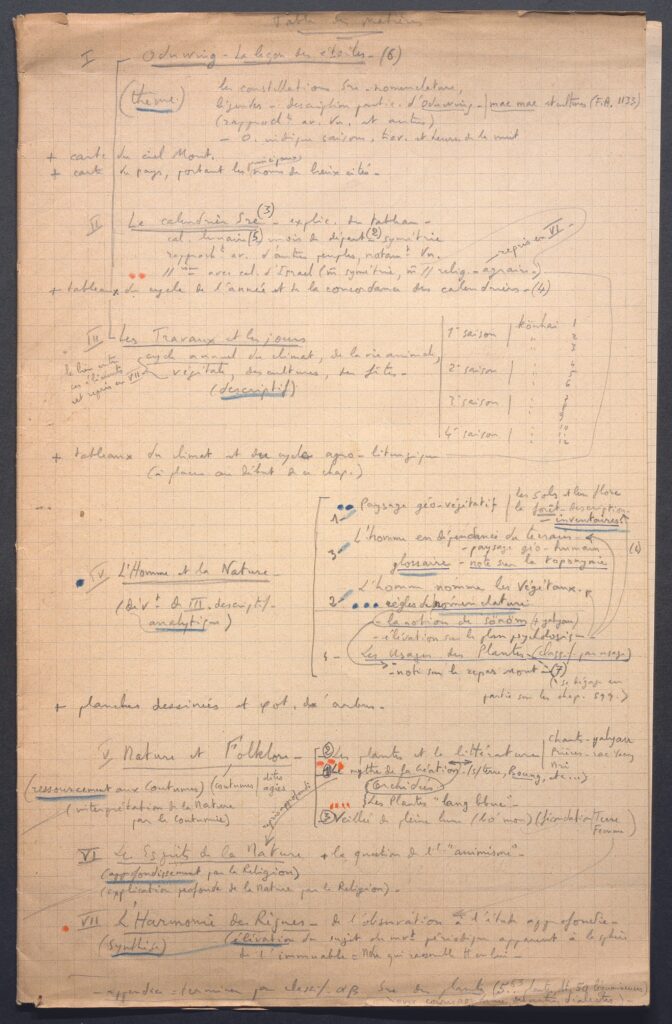 Table des Matières
I Oduwing - La leçon des étoiles - (6)
(thème) les constellations Sre - nomenclature,
légendes - description partic. d'Oduwing - mae mae et cultures (F.A. 1133)
(rapproch^t av. Vn. et autres)
- O. indique saisons, trav. et heures de la nuit
+ carte du ciel Mont.
+ carte du pays, portant les noms principaux de lieux cités -
II Le calendrier Sre (3) - explic. du tableau -
cal. lunaire (5) mois de départ (2) symétrie
rapproch^t av. d'autres peuples, notam^t Vn.
// avec cal. d'Israel (m̄ symétrie, m̄ // relig.-agraire) repris en VI
+ tableaux du cycle de l'année et de la concordance des calendriers - (4)
III Les Travaux et les jours
cycle annuel du climat, de la vie animale,
végétale, des cultures, des fêtes -
(descriptif)
le lien entre
ces éléments
est repris en VII
1e saison Könhai 1
" 2
" 3
2e saison " 4
" 5
" 6
3e saison " 7
" 8
" 9
4e saison " 10
" 11
" 12
+ tableaux du climat et du cycle agro-liturgique
(à placer au début de ce chap.)
IV L'Homme et la Nature -
(dév^t de III. descriptif -
analytique)
1 - Paysage géo-végétatif les sols et leur flore
la forêt - description -
- inventaires
3 - L'homme en dépendance du terrain -
- paysage géo-humain
glossaire - note sur la toponymie
2 - L'homme nomme les végétaux -
règles de nomenclature
- la notion de sönöm (+ yalyau)
- élévation sur le plan psychologiq -
4 - Les Usages des Plantes - (class. / par usage)
- note sur le repas mont - (7)
(se dégage en
partie sur les chap. sqq.)
+ planches dessinées et phot. d'arbres -
V Nature et Folklore -
(ressourcement aux Coutumes) (coutumes dites agies)
(interprétation de la Nature
par le Coutumier)
approfondi
2 Les plantes et la littérature Chants - yalyau
Prières - racines
Nri
1 Le mythe de la création - (s/ terre, Böung, etc...)
(Orchidées)
Les Plantes "lang bbue" -
3 Veillée de pleine lune (bö mon) (fécondation Terre
Femme)
VI Les Esprits de la Nature + la question de l'"animisme" -
(approfondissement par la Religion)
(explication profonde de la Nature par la Religion) -
VII L'Harmonie des Règnes - de l'observation à l'étude approfondie -
(Synthèse) (élévation du sujet du mvt périodique apparent à la sphère
de l'immuable = Ndu qui rassemble tt en lui -
- appendice = terminer par classif αβ Sre des plantes